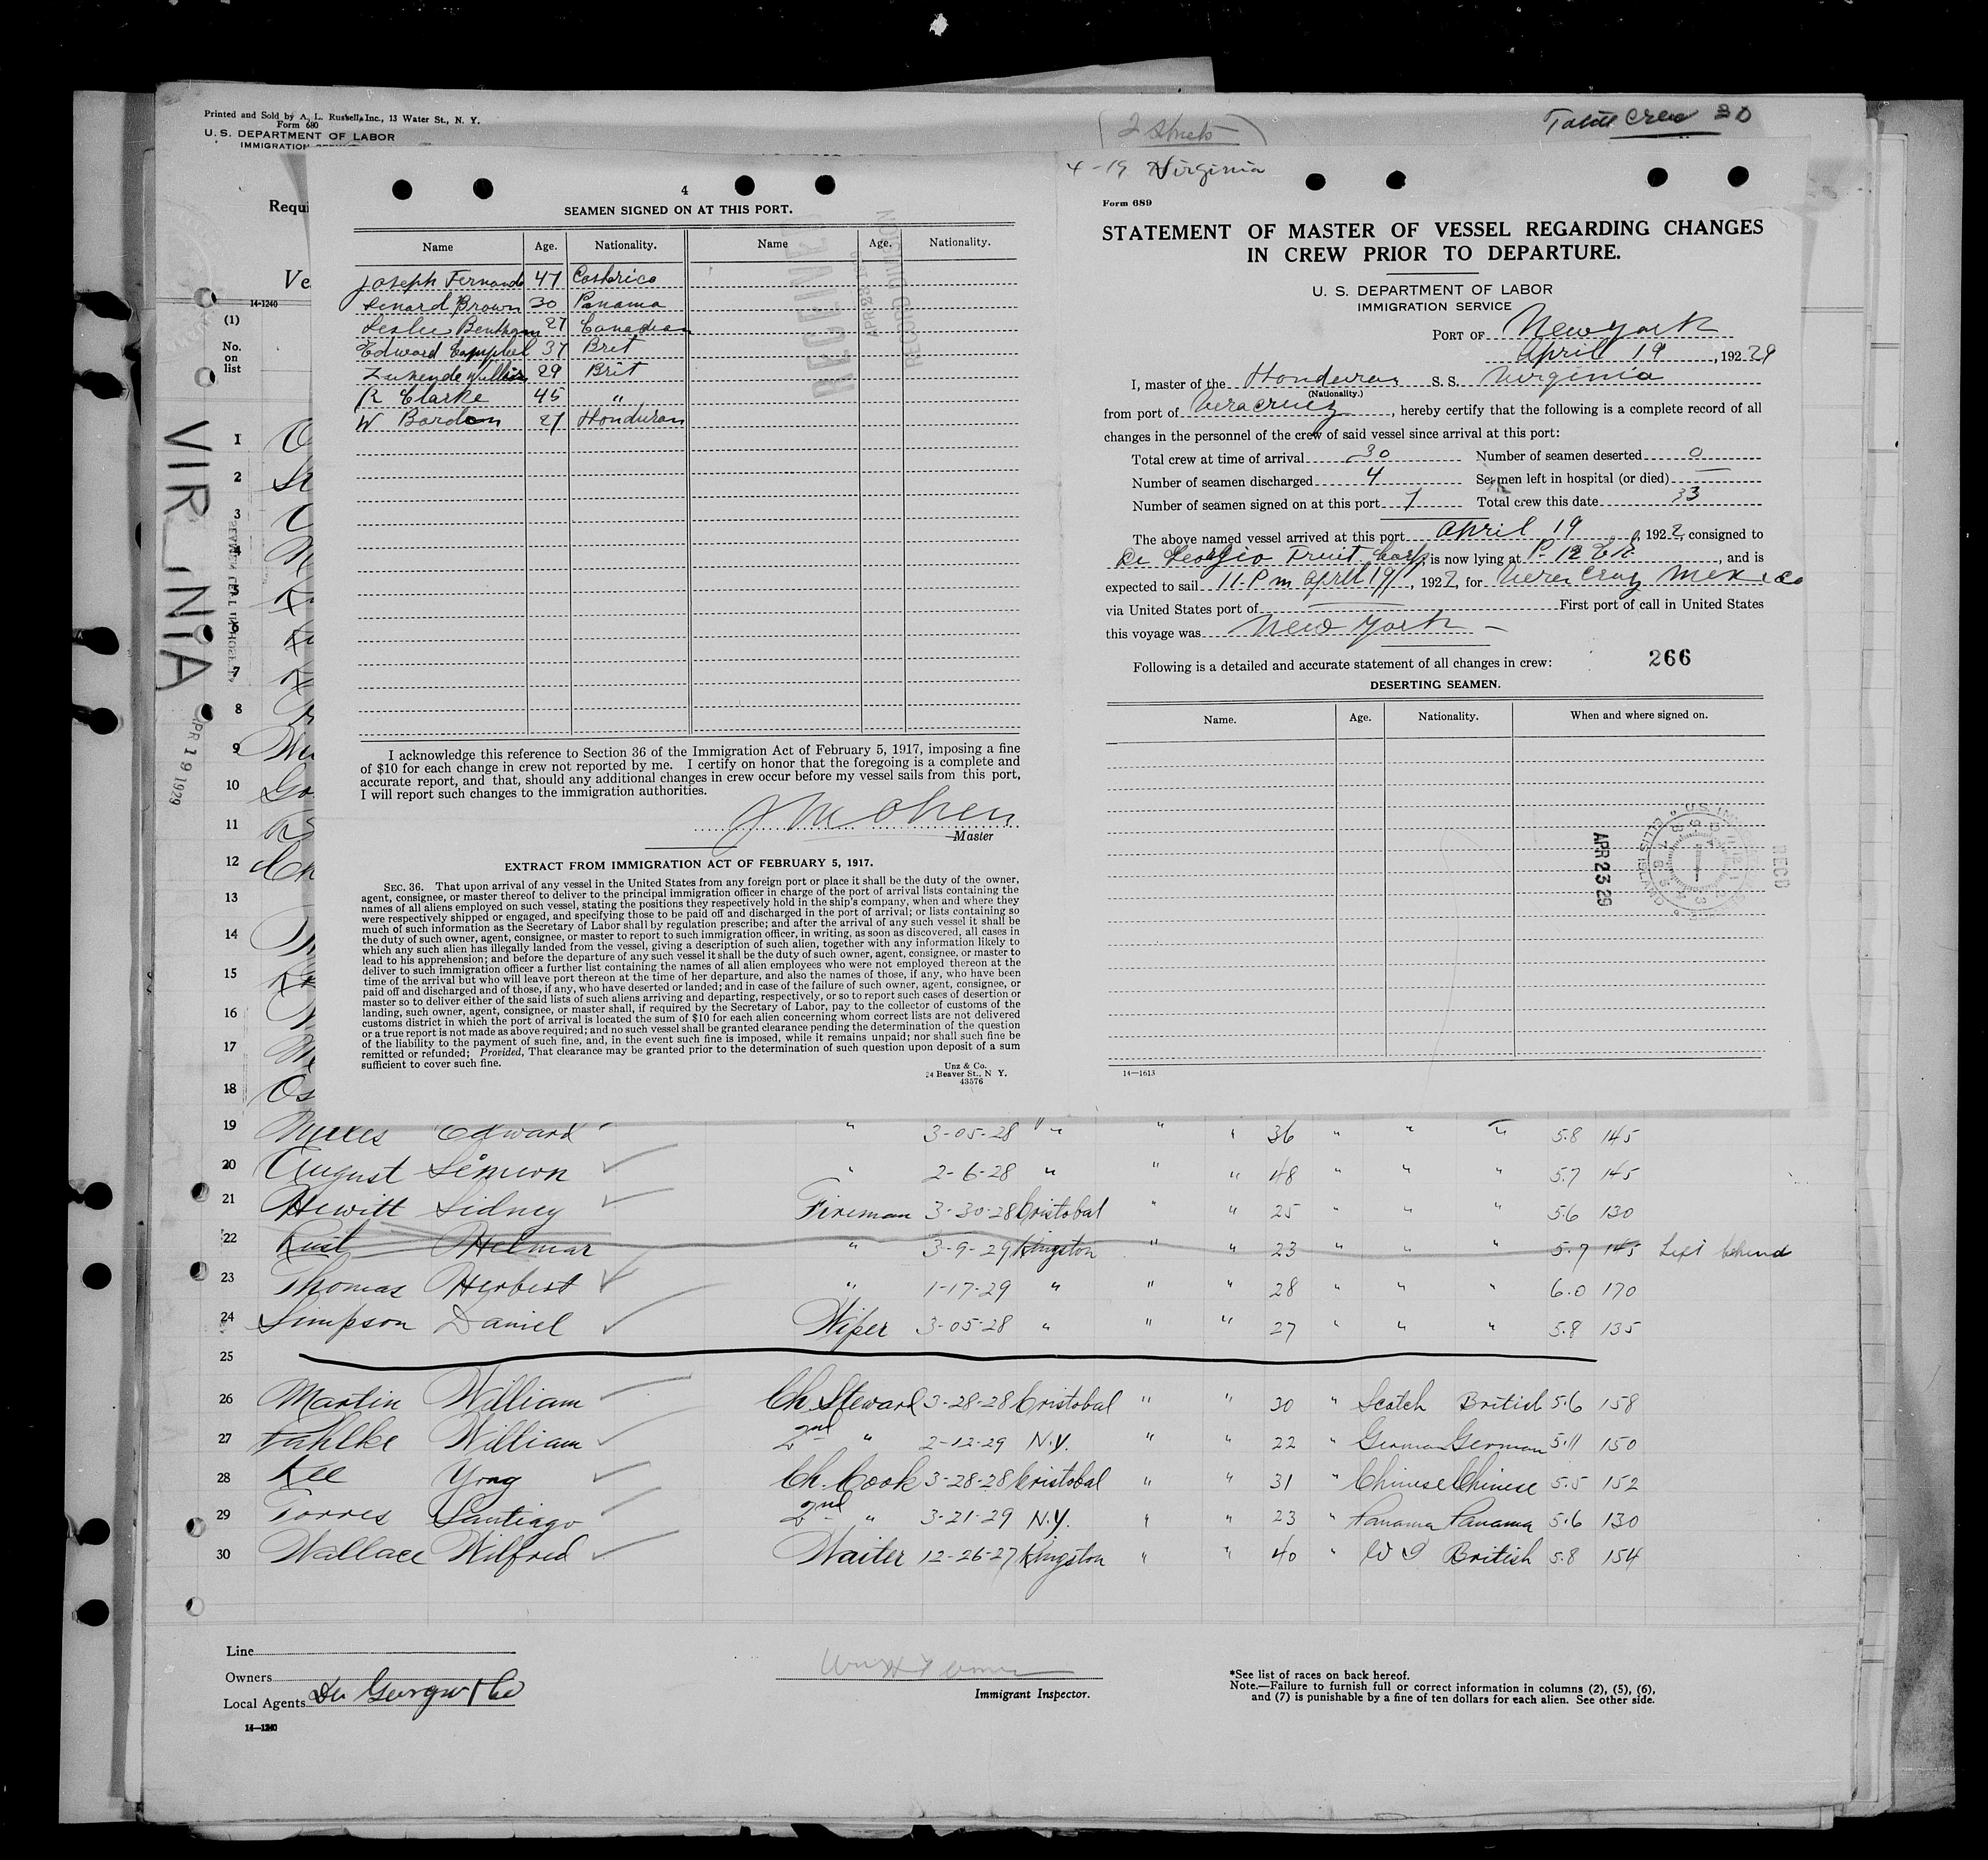 Printed and Sold by A. L. Russell, Inc., 13 Water St., N. Y.
Form 680
U. S. DEPARTMENT OF LABOR
IMMIGRATION
2 sheets
Total Crew 30
Requi
Ve
14-1240
(1)
No.
on
list
VIRGINIA
APR 19 1929
4
SEAMEN SIGNED ON AT THIS PORT.
Name Age. Nationality. Name Age. Nationality.
Joseph Fernando 47 Costarica
Lenard Brown 30 Panama
Leslie Bentham 27 Canadian
Edward Campbel 37 Brit
29 Brit
R Clarke 45 "
W Bordon 27 Honduran
I acknowledge this reference to Section 36 of the Immigration Act of February 5, 1917, imposing a fine
of $10 for each change in crew not reported by me. I certify on honor that the foregoing is a complete and
accurate report, and that, should any additional changes in crew occur before my vessel sails from this port,
I will report such changes to the immigration authorities.
Master
EXTRACT FROM IMMIGRATION ACT OF FEBRUARY 5, 1917.
SEC. 36. That upon arrival of any vessel in the United States from any foreign port or place it shall be the duty of the owner,
agent, consignee, or master thereof to deliver to the principal immigration officer in charge of the port of arrival lists containing the
names of all aliens employed on such vessel, stating the positions they respectively hold in the ship's company, when and where they
were respectively shipped or engaged, and specifying those to be paid off and discharged in the port of arrival; or lists containing so
much of such information as the Secretary of Labor shall by regulation prescribe; and after the arrival of any such vessel it shall be
the duty of such owner, agent, consignee, or master to report to such immigration officer, in writing, as soon as discovered, all cases in
which any such alien has illegally landed from the vessel, giving a description of such alien, together with any information likely to
lead to his apprehension; and before the departure of any such vessel it shall be the duty of such owner, agent, consignee, or master to
deliver to such immigration officer a further list containing the names of all alien employees who were not employed thereon at the
time of the arrival but who will leave port thereon at the time of her departure, and also the names of those, if any, who have been
paid off and discharged and of those, if any, who have deserted or landed; and in case of the failure of such owner, agent, consignee, or
master so to deliver either of the said lists of such aliens arriving and departing, respectively, or so to report such cases of desertion or
landing, such owner, agent, consignee, or master shall, if required by the Secretary of Labor, pay to the collector of customs of the
customs district in which the port of arrival is located the sum of $10 for each alien concerning whom correct lists are not delivered
or a true report is not made as above required; and no such vessel shall be granted clearance pending the determination of the question
of the liability to the payment of such fine, and, in the event such fine is imposed, while it remains unpaid; nor shall such fine be
remitted or refunded; Provided, That clearance may be granted prior to the determination of such question upon deposit of a sum
sufficient to cover such fine.
Unz & Co.
24 Beaver St., N Y.
43576
4-19 Virginia
Form 689
STATEMENT OF MASTER OF VESSEL REGARDING CHANGES
IN CREW PRIOR TO DEPARTURE.
U. S. DEPARTMENT OF LABOR
IMMIGRATION SERVICE
PORT OF New York
April 19, 192 29
I, master of the Honduran S. S. Virginia
(Nationality.)
from port of Veracruz, hereby certify that the following is a complete record of all
changes in the personnel of the crew of said vessel since arrival at this port:
Total crew at time of arrival 30 Number of seamen deserted 0
Number of seamen discharged 4 Seamen left in hospital (or died) —
Number of seamen signed on at this port 7 Total crew this date 33
The above named vessel arrived at this port April 19, 192 consigned to
De Georgio Fruit Corp, is now lying at P. 12 E R, and is
expected to sail 11. P m April 19, 192 , for Vera Cruz Mexico
via United States port of — First port of call in United States
this voyage was New York —
Following is a detailed and accurate statement of all changes in crew:
266
DESERTING SEAMEN.
Name. Age. Nationality. When and where signed on.
APR 23 29
RECD
14—1613
1
2
3
4
5
6
7
8
9
10
11
12
13
14
15
16
17
18
19 Edward " 3-05-28 " " " 36 " " " 5.8 145
20 August Simeon " 2-6-28 " " " 48 " " " 5.7 145
21 Hewitt Sidney Fireman 3-30-28 Cristobal " " 25 " " " 5.6 130
22 Rust Helmar " 3-9-29 Kingston " " 23 " " " 5.7 145 Left behind
23 Thomas Herbert " 1-17-29 " " " 28 " " " 6.0 170
24 Simpson Daniel Wiper 3-05-28 " " " 27 " " " 5.8 135
25
26 Martin William Ch Steward 3-28-28 Cristobal " " 30 " Scotch British 5.6 158
27 Fahlke William 2nd " 2-12-29 N.Y. " " 22 " German German 5.11 150
28 Kee Yong Ch. Cook 3-28-28 Cristobal " " 31 " Chinese Chinese 5.5 152
29 Torres Santiago 2nd " 3-21-29 N.Y. " " 23 " Panama Panama 5.6 130
30 Wallace Wilfred Waiter 12-26-27 Kingston " " 40 " W I British 5.8 154
Line
Owners
Local Agents
Immigrant Inspector.
14—1240
*See list of races on back hereof.
Note.—Failure to furnish full or correct information in columns (2), (5), (6),
and (7) is punishable by a fine of ten dollars for each alien. See other side.